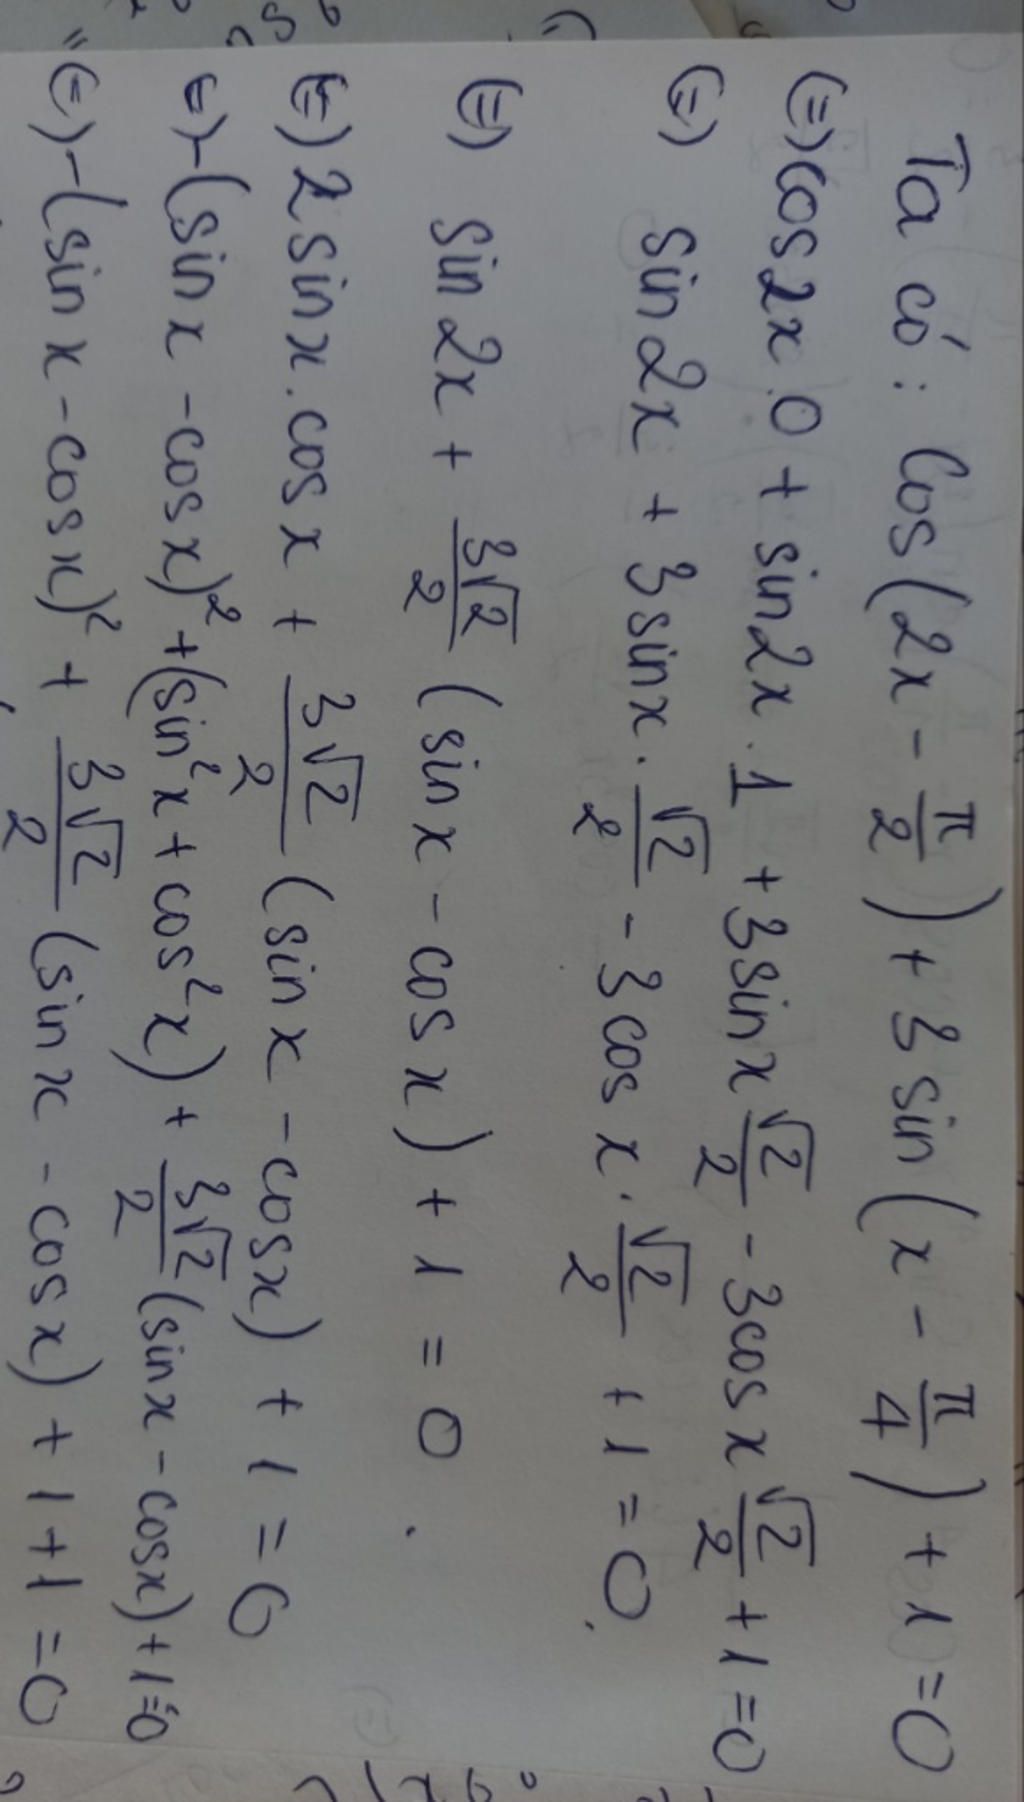 Ta có: Cos(2x - π/2) + 3 sin(x - π/4) + 1 = 0
(=) cos2x.0 + sin2x.1 + 3sinx √2/2 - 3cosx √2/2 + 1 = 0
(=) sin2x + 3sinx.√2/2 - 3cosx.√2/2 + 1 = 0.
(=) sin2x + 3√2/2 (sinx - cosx) + 1 = 0.
(=) 2sinx.cosx + 3√2/2 (sinx - cosx) + 1 = 0
(=) -(sinx - cosx)² + (sin²x + cos²x) + 3√2/2 (sinx - cosx) + 1 = 0
(=) -(sinx - cosx)² + 3√2/2 (sinx - cosx) + 1 + 1 = 0